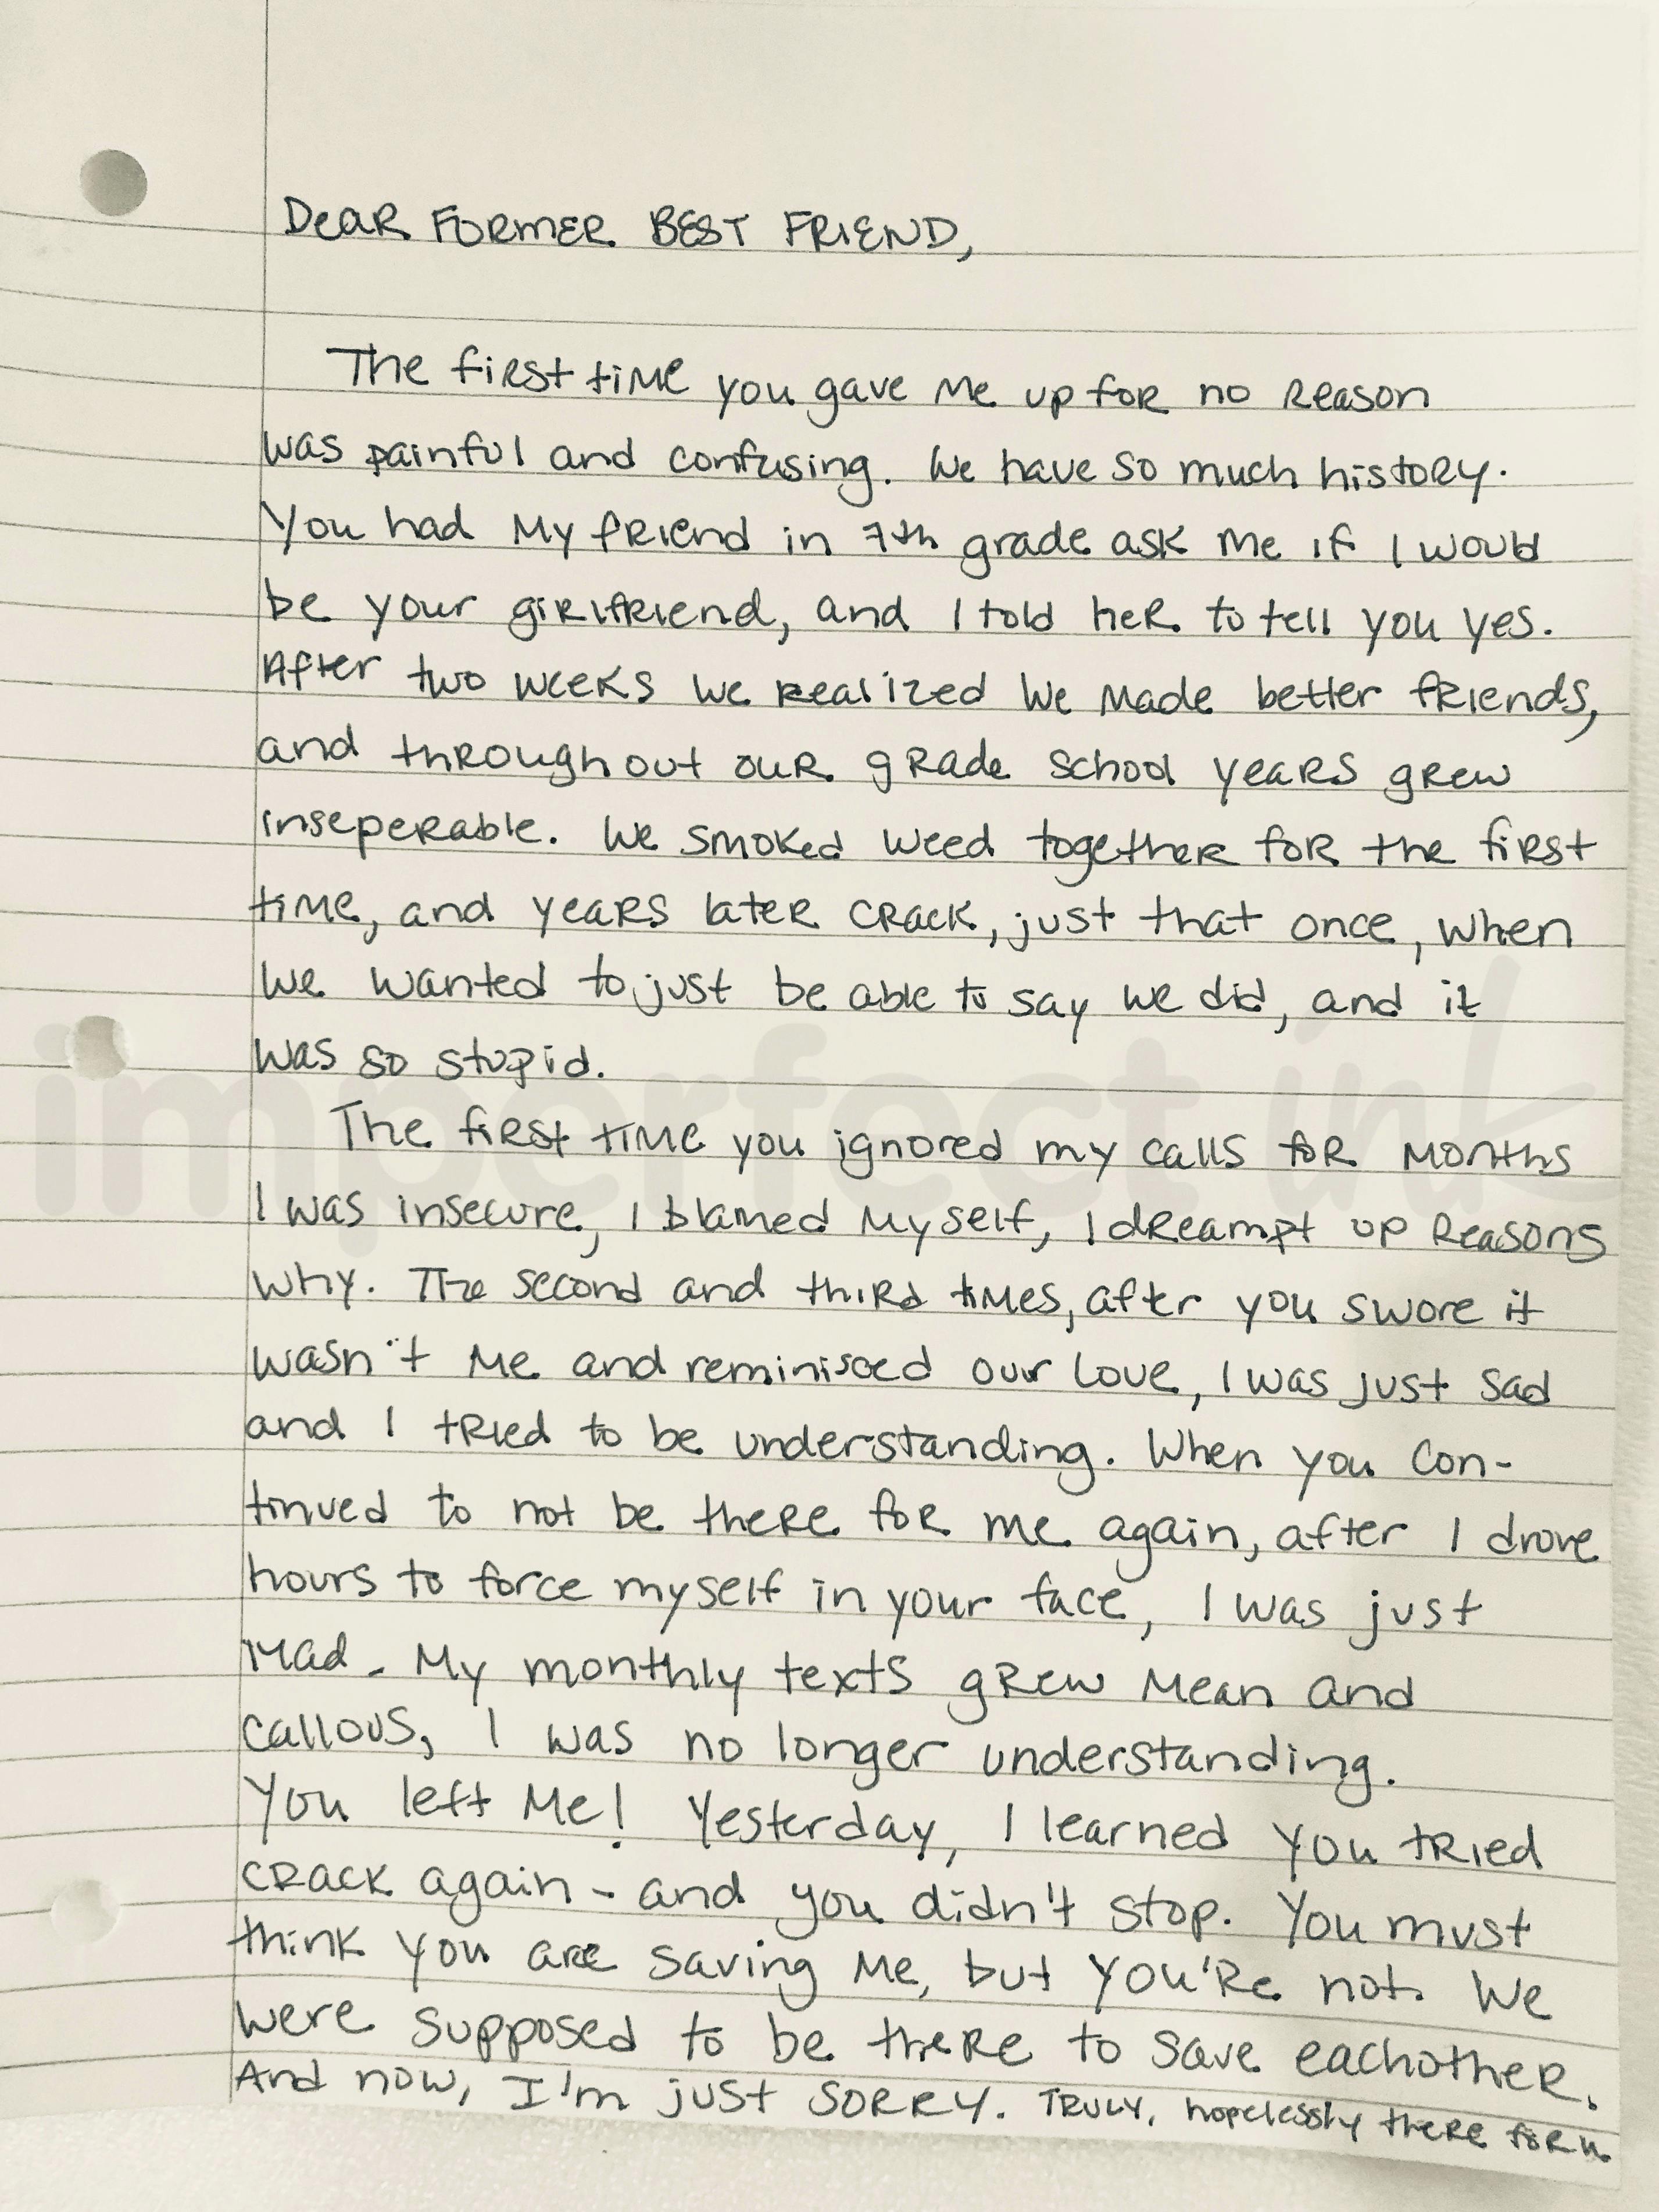 Dear Former Best Friend,
The first time you gave me up for no reason
was painful and confusing. We have so much history.
You had my friend in 7th grade ask me if I would
be your girlfriend, and I told her to tell you yes.
After two weeks we realized we made better friends,
and throughout our grade school years grew
inseperable. We smoked weed together for the first
time, and years later crack, just that once, when
we wanted to just be able to say we did, and it
was so stupid.
imperfect ink
The first time you ignored my calls for months
I was insecure, I blamed myself, I dreampt up reasons
why. The second and third times, after you swore it
wasn't me and reminisced our love, I was just sad
and I tried to be understanding. When you con-
tinued to not be there for me again, after I drove
hours to force myself in your face, I was just
mad. My monthly texts grew mean and
callous, I was no longer understanding.
You left me! Yesterday, I learned you tried
crack again - and you didn't stop. You must
think you are saving me, but you're not. We
were supposed to be there to save eachother.
And now, I'm just sorry. Truly, hopelessly there for u